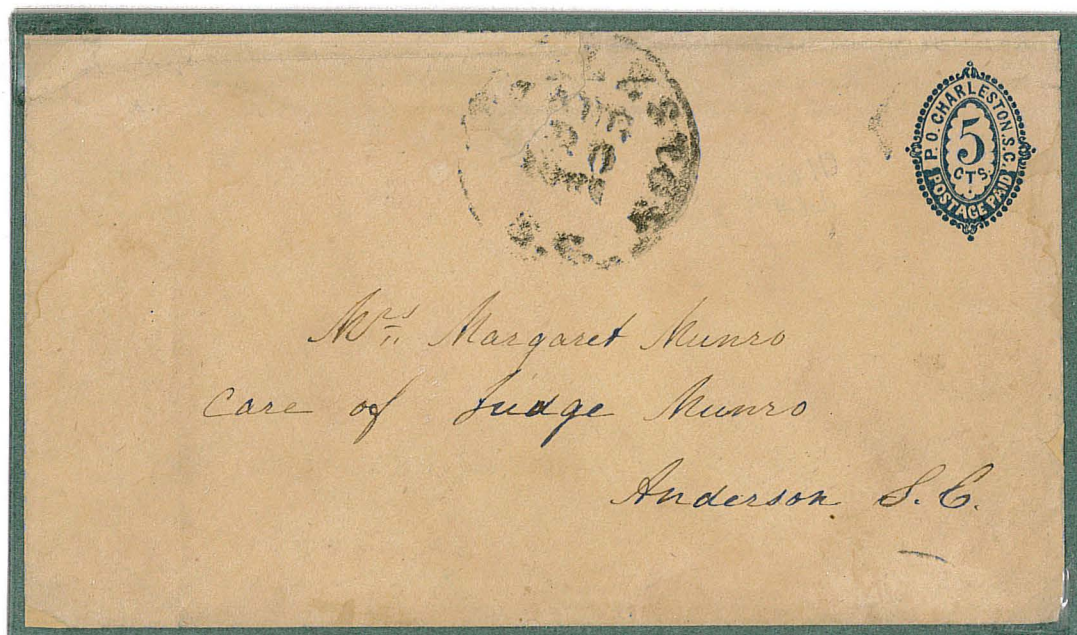 CHARLESTON
AUG
20
S.C.
P.O. CHARLESTON. S.C.
5
CTS.
POSTAGE PAID
Mrs. Margaret Munro
Care of Judge Munro
Anderson S.C.